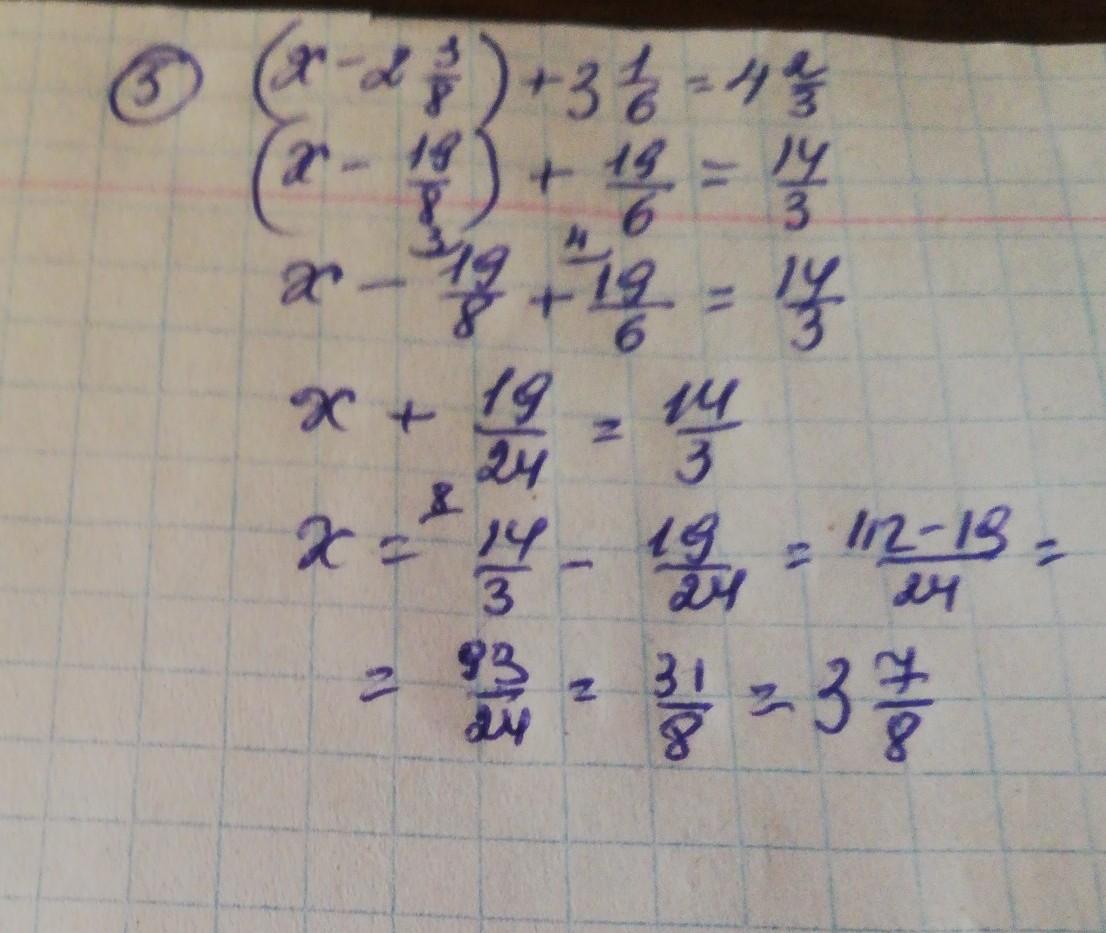 ⑤ (x - 2 3/8) + 3 1/6 = 4 2/3
(x - 19/8) + 19/6 = 14/3
x - ³19/8 + ⁴19/6 = 14/3
x + 19/24 = 14/3
x = ⁸14/3 - 19/24 = 112-19/24 =
= 93/24 = 31/8 = 3 7/8